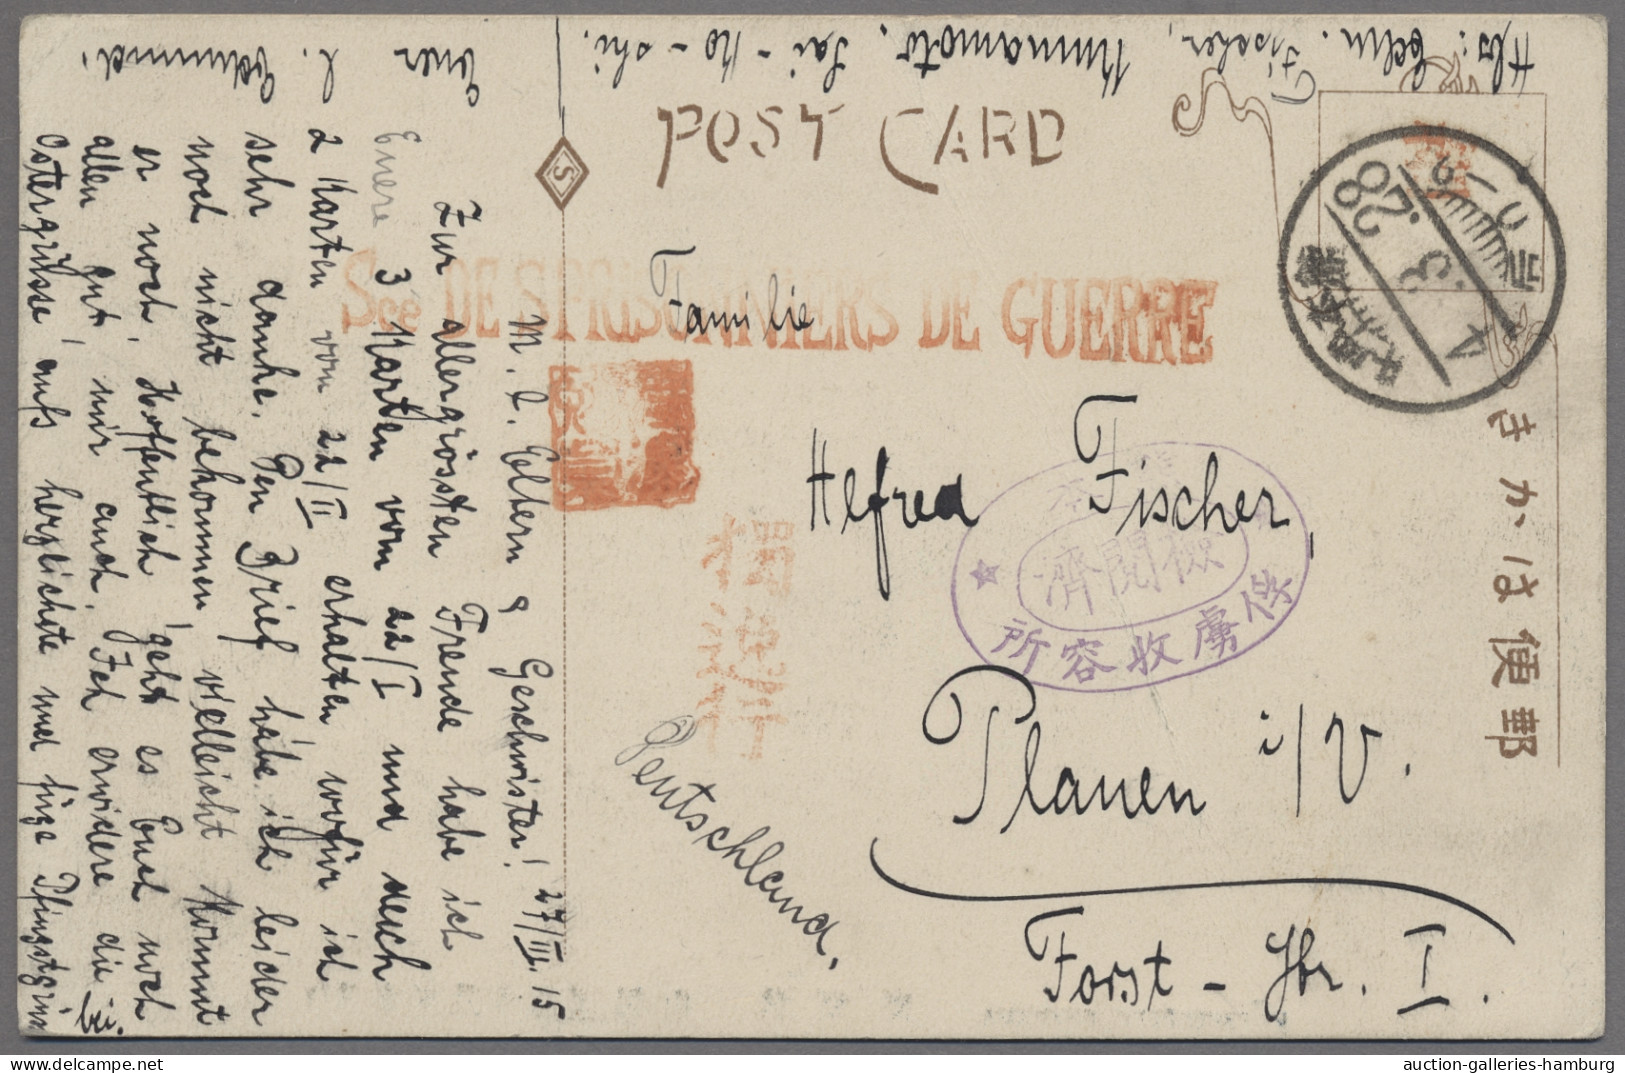 Abs: Edm. Fischer,
Kumamoto, Sai-Ko-shi.
POST CARD
S
Sce DES PRISONNIERS DE GUERRE
Familie
Alfred Fischer
Plauen i/V.
Forst-Str. I.
Deutschland.
きかは便郵
28
4. 3. 27.
俘虜収容所
検閲済
27/III. 15
M. l. Eltern & Geschwister!
Zur allergrössten Freude habe ich
Euere 3 Karten vom 22/I und auch
2 Karten vom 22/II erhalten wofür ich
sehr danke. Den Brief habe ich leider
noch nicht bekommen vielleicht kommt
er noch. Hoffentlich geht es Euch noch
allen gut, mir auch. Ich erwidere die
Ostergrüsse aufs herzlichste und füge Pfingstgrüsse
bei.
Euer
l. Edmund.